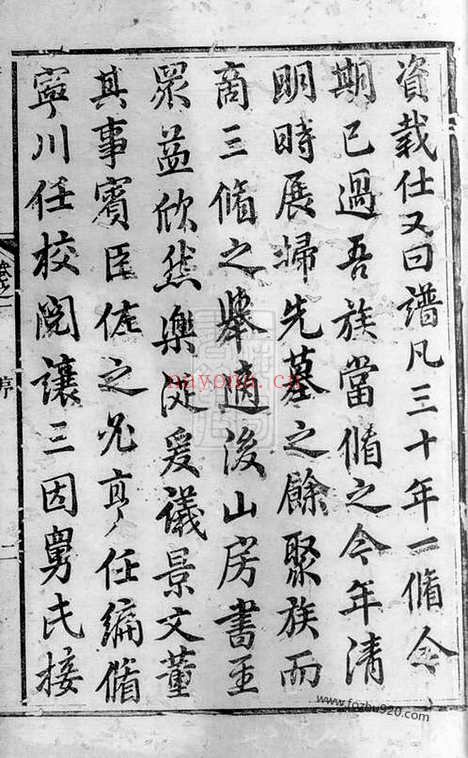 資栽仕又曰譜凡三十年一脩今
期已過吾族當脩之今年清
明時展埽先墓之餘聚族而
商三脩之舉適後山房書至
眾益欣然樂從爰議景文董
其事賓臣佐之兆亨任編脩
寧川任校閱讓三因舅氏接
序
nayona.cn
www.fozhu920.com